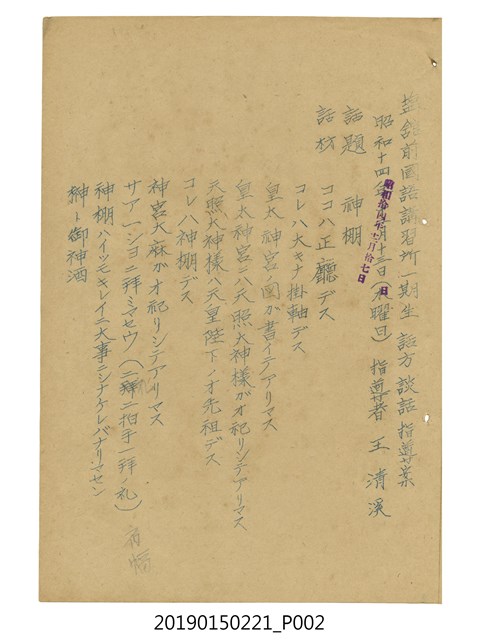 塩館前國語講習所一期生 話方談話指導案
昭和十四年 月十三日（木曜日） 指導者 王清溪
昭和拾四年 月拾七日
話題 神棚
話材 ココハ正廳デス
コレハ大キナ掛軸デス
皇太神宮ノ図ガ書イテアリマス
皇太神宮ニハ天照大神様ガオ祀リシテアリマス
天照大神様ハ天皇陛下ノオ先祖デス
コレハ神棚デス
神宮大麻ガオ祀リシテアリマス
サア一ショニ拝ミマセウ（二拜二拍手一拜ノ礼）
神棚ハイツモキレイニ大事ニシナケレバナリマセン
榊ト御神酒
20190150221_P002